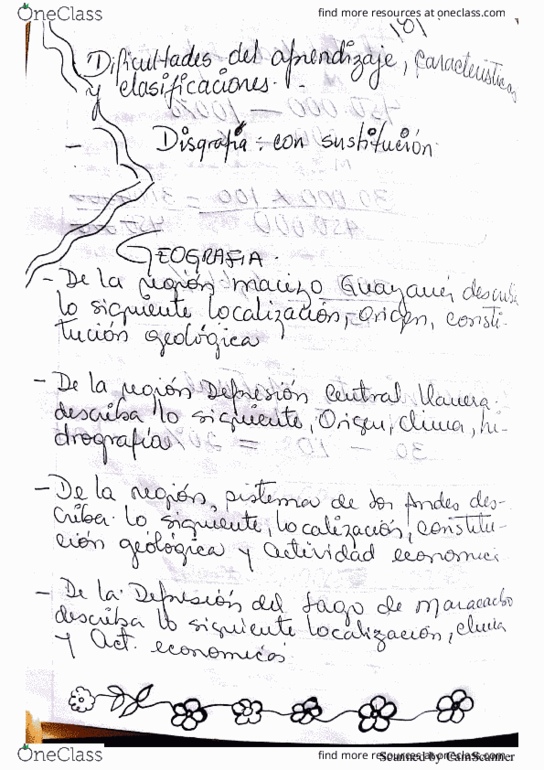 OneClass
find more resources at oneclass.com
101
Dificultades del aprendizaje, características
y clasificaciones.
- Disgrafía: con sustitución
GEOGRAFIA.
- De la región macizo Guayanés describa
lo siguiente localización, origen, consti-
tución geológica
- De la región Depresión central llanera.
describa lo siguiente, Origen, clima, hi-
drografía
- De la región, sistema de los Andes des-
criba lo siguiente, localización, constitu-
ción geológica y actividad economica
- De la Depresión del Lago de Maracaibo
describa lo siguiente localización, clima
y Act. economicas
OneClass
find more resources at oneclass.com
Scanned by CamScanner